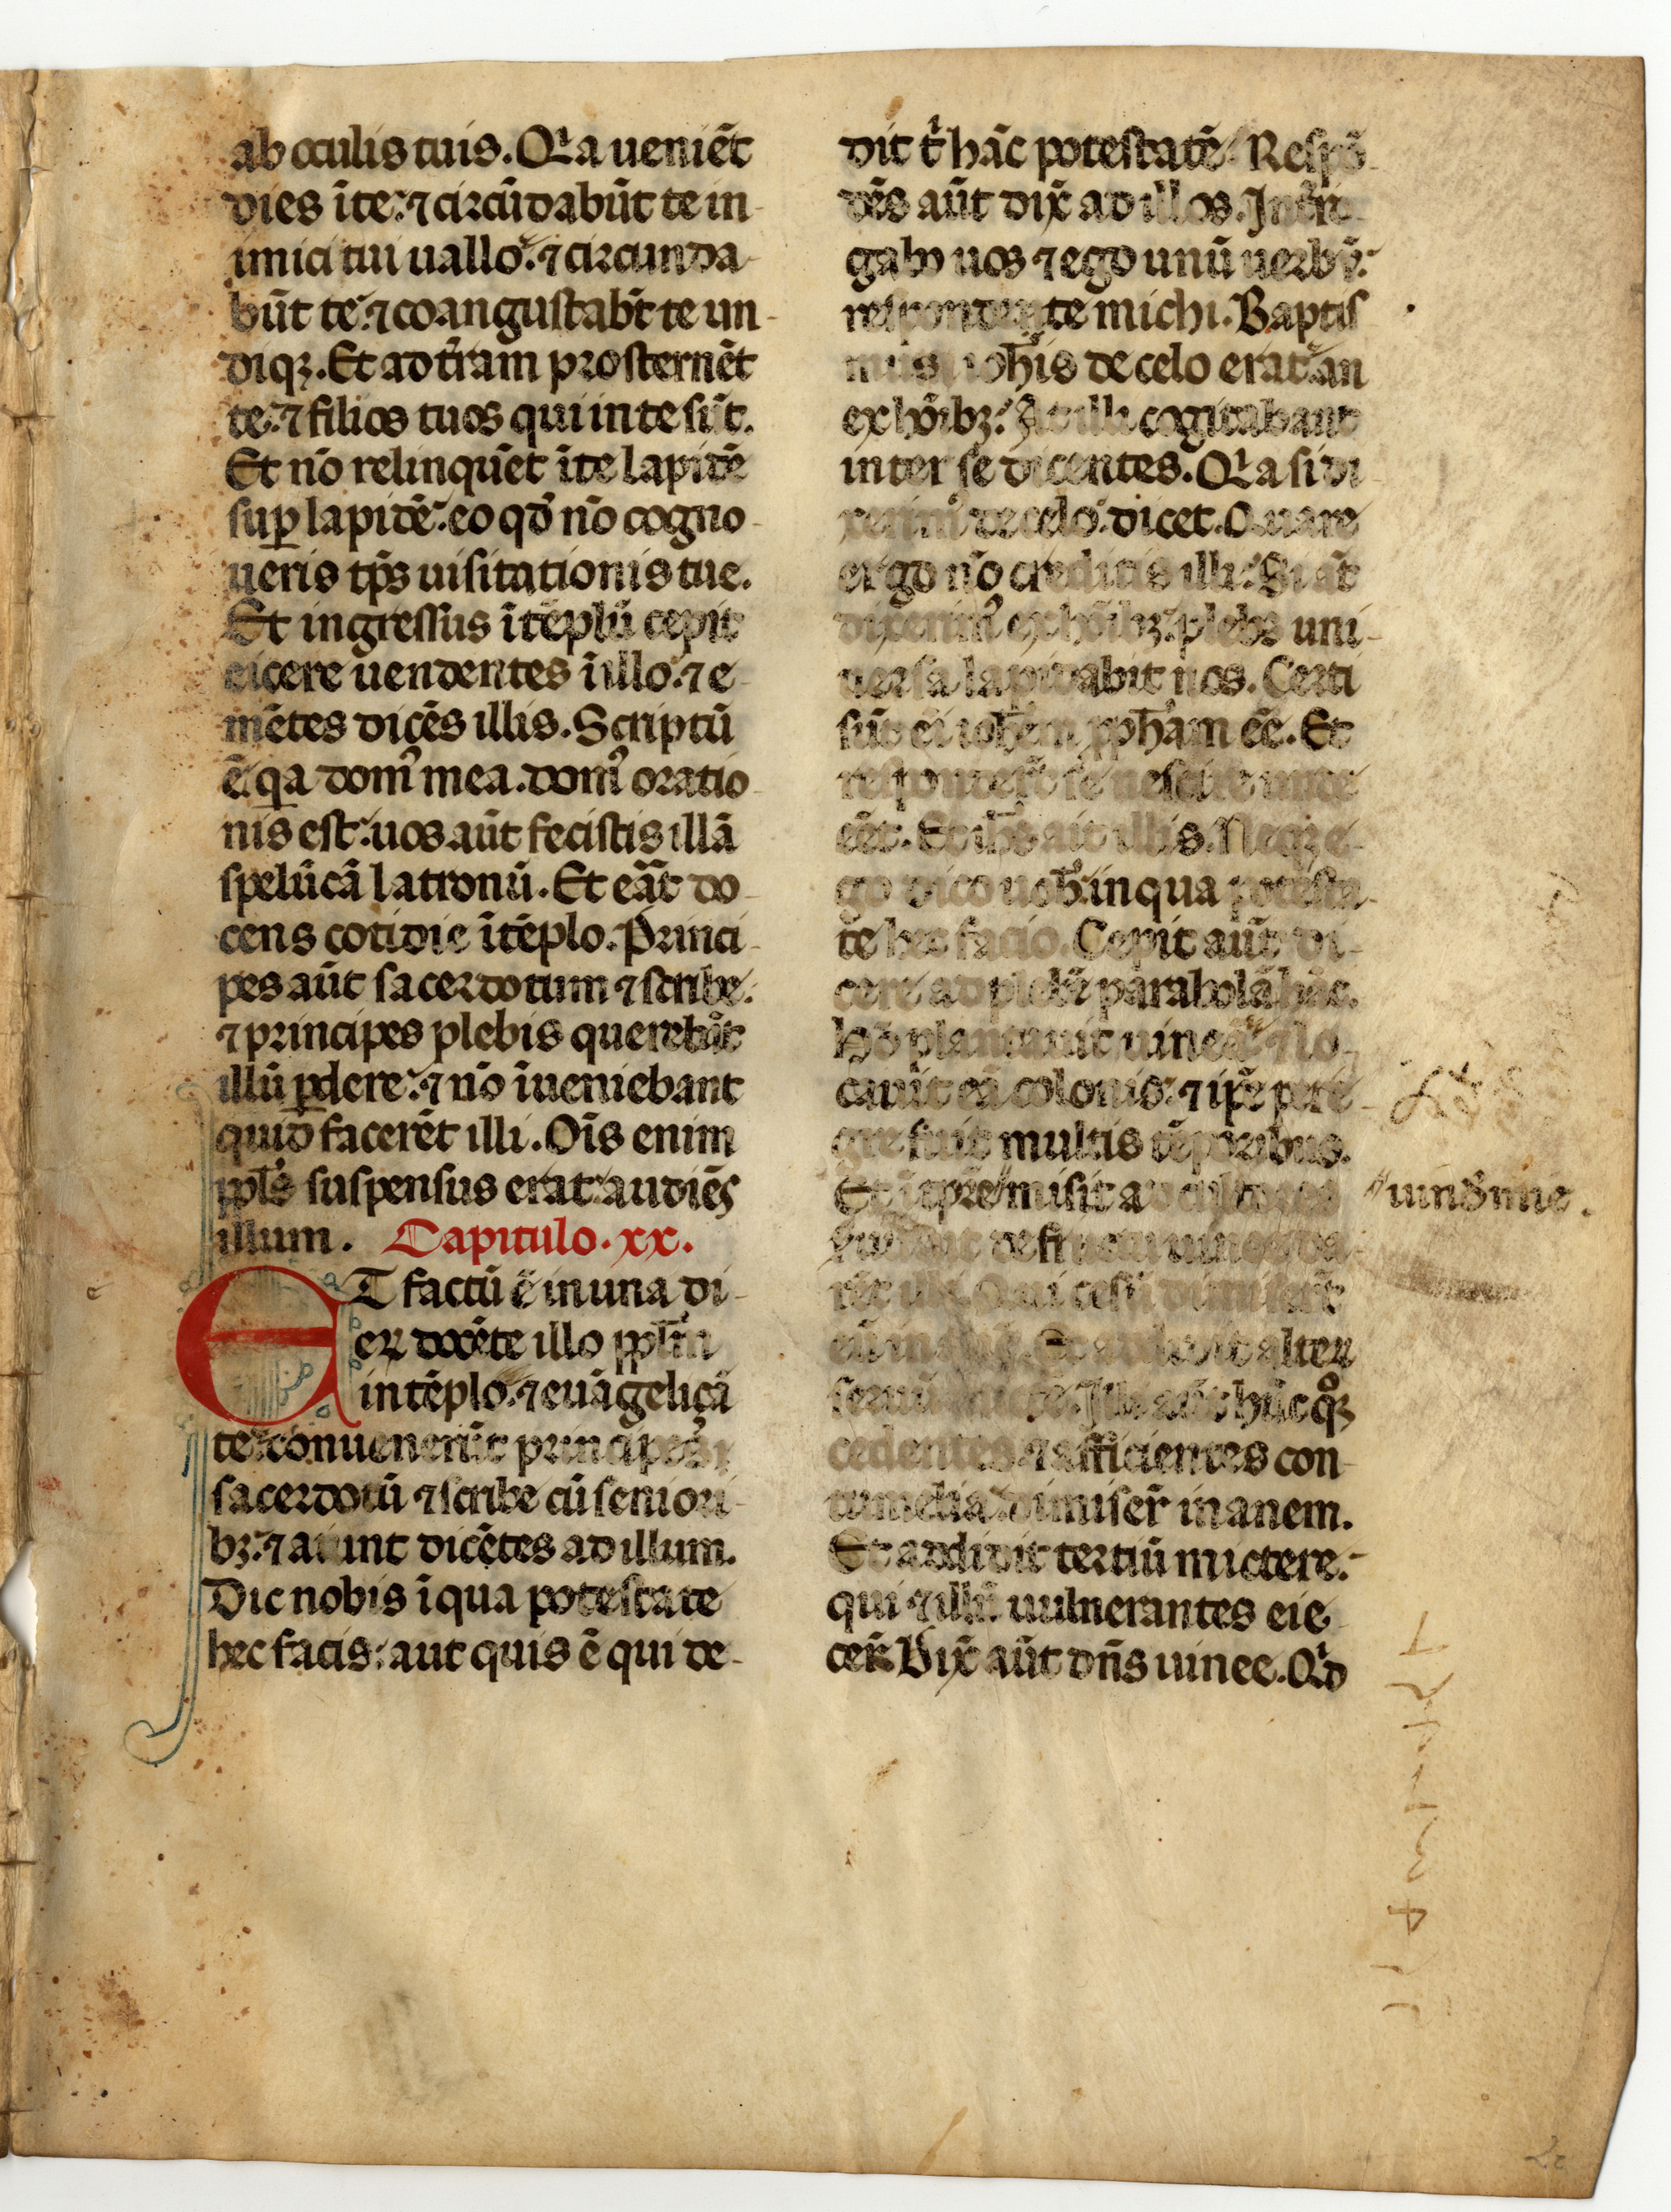 ab oculis tuis. Qꝛ̍a ueniēt
dies īte: ⁊ circūdabūt te in-
imici tui uallo: ⁊ circunda-
būt te: ⁊ coangustabt̄ te un-
diqꝫ. Et ad tr̄am prosternēt
te: ⁊ filios tuos qui in te sūt.
Et nō relinquēt īte lapidē
suꝑ lapidē: eo qđ nō cogno-
ueris tp̄s uisitationis tue.
Et ingressus ītēplū cepit
eicere uendentes īillo: ⁊ e-
mētes dicēs illis. Scriptū
ē qꝛa domꝰ mea. domꝰ oratio-
nis est: uos aūt fecistis illā
spelūcā latronū. Et eāt do-
cens cotidie ītēplo. Princi-
pes aūt sacerdotum ⁊ scribe:
⁊ principes plebis querebāt
illū ꝑdere: ⁊ nō īueniebant
quid facerēt illi. Oīs enim
ppl̄s suspensus erat: audiēs
illum. Capitulo. xx.
ET factū ē in una di-
erꝫ docēte illo ppl̄m
in tēplo: ⁊ euāgelicā
te: conuenerūt principes
sacerdotū ⁊ scribe cū seniori-
bꝫ: ⁊ aiunt dicētes ad illum.
Dic nobis ī qua potestate
hec facis: aut quis ē qui de-
dit t̍ hāc potestatē. Respō-
dēs aūt dix̄ ad illos. Int̄ro-
gabo uos ⁊ ego unū uerbū:
respondete michi. Baptis
mus ioh̄is de celo erat: an
ex hoībꝫ: At illi cogitabant
inter se dicentes. Qꝛ̍a si di-
xerimꝰ de celo: dicet. Quare
ergo nō creditis illi: Si aūt
dixerimꝰ ex hoībꝫ: plebs uni-
uersa lapidabit nos. Certi
sūt ei ioh̄em ꝓph̄am eē. Et
responder̄t se nescire unde
eēt. Et ih̄s ait illis. Neqꝫ e-
go dico uob̄: in qua potesta-
te hec facio. Cepit aūt di-
cere ad plebē parabolā hāc.
Hō plantauit uineā: ⁊ lo-
cauit eā colonis: ⁊ ip̄e pere-
gre fuit multis tēporibus.
Et ī tp̄re misit ad cultores uindemie.
de fructu uinee da-
rēt illi. Qui cesū dimiser̄t
eū inanē. Et addidit alter
seruū mictē. Illi aūt hūc qͦqꝫ
cedentes ⁊ afficientes con-
tumelia: dimiser̄ inanem.
Et addidit tertiū mictere:
qui ⁊ illū uulnerantes eie-
cer̄. Dix̄ aūt dn̄s uinee. Qͥd